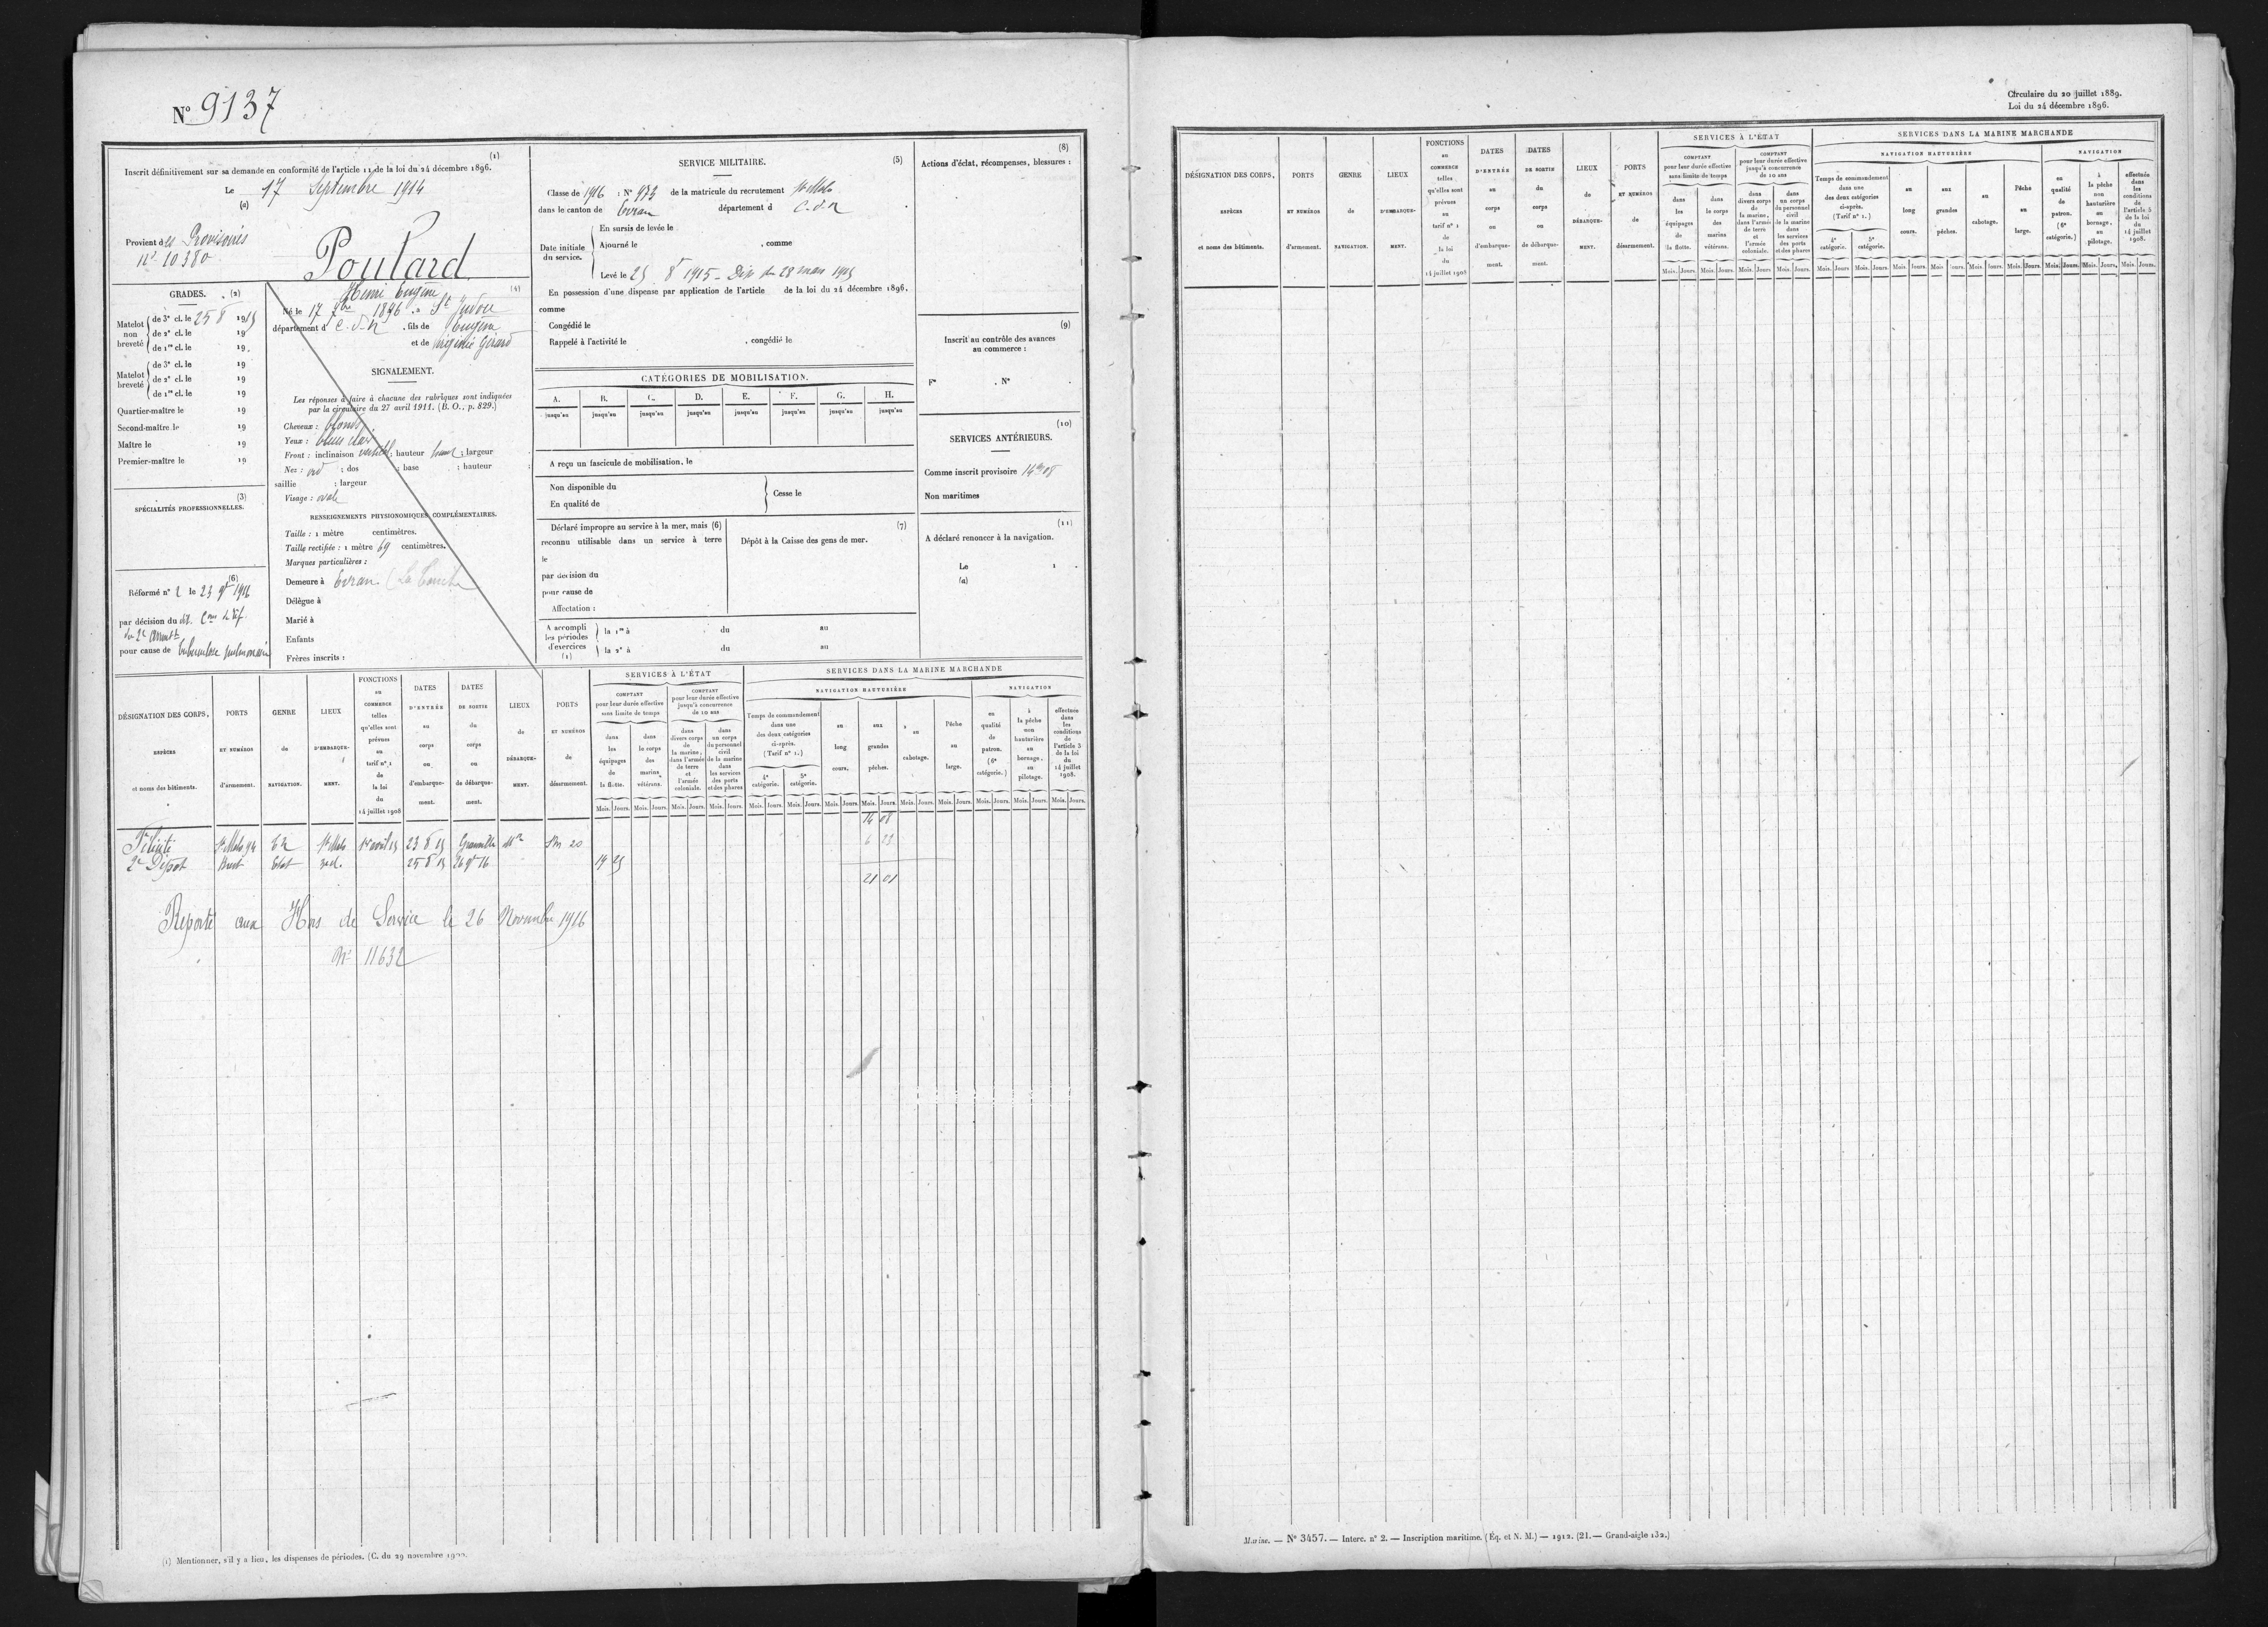 N° 9137
(1)
Inscrit définitivement sur sa demande en conformité de l'article 11 de la loi du 24 décembre 1896.
Le 17 Septembre 1914
(a)
Provient des Provisoires
n° 10380
Poulard
Henri Eugène
(4)
Né le 17 7bre 1896 à St Judoce
département d C-d-N , fils de Eugène
et de Virginie Girard
GRADES. (2)
Matelot non breveté
de 3e cl. le 25 8 1915
de 2e cl. le 19
de 1re cl. le 19
Matelot breveté
de 3e cl. le 19
de 2e cl. le 19
de 1re cl. le 19
Quartier-maître le 19
Second-maître le 19
Maître le 19
Premier-maître le 19
(3)
SPÉCIALITÉS PROFESSIONNELLES.
(6)
Réformé n° 2 le 23 9bre 1916
par décision du
du 2e arrondt
pour cause de tuberculose pulmonaire
SIGNALEMENT.
Les réponses à faire à chacune des rubriques sont indiquées
par la circulaire du 27 avril 1911. (B. O., p. 829.)
Cheveux : blonds
Yeux : bleus clair
Front : inclinaison vertical ; hauteur ; largeur
Nez : ; dos ; base ; hauteur ;
saillie ; largeur
Visage : ovale
RENSEIGNEMENTS PHYSIONOMIQUES COMPLÉMENTAIRES.
Taille : 1 mètre centimètres.
Taille rectifiée : 1 mètre 69 centimètres.
Marques particulières :
Demeure à Evran
Délègue à
Marié à
Enfants
Frères inscrits :
SERVICE MILITAIRE. (5)
Classe de 1916 : N° 973 de la matricule du recrutement St Malo
dans le canton de Evran département d C-d-N
Date initiale du service.
En sursis de levée le
Ajourné le , comme
Levé le 25 8t 1915 - Dép. du 28 mars 1915
En possession d'une dispense par application de l'article de la loi du 24 décembre 1896,
comme
Congédié le
Rappelé à l'activité le , congédié le
CATÉGORIES DE MOBILISATION.
A. B. C. D. E. F. G. H.
jusqu'au jusqu'au jusqu'au jusqu'au jusqu'au jusqu'au jusqu'au jusqu'au
A reçu un fascicule de mobilisation, le
Non disponible du
En qualité de
Cesse le
Déclaré impropre au service à la mer, mais (6)
reconnu utilisable dans un service à terre
le
par décision du
pour cause de
Affectation :
(7)
Dépôt à la Caisse des gens de mer.
A accompli les périodes d'exercices (1)
la 1re à du au
la 2e à du au
(8)
Actions d'éclat, récompenses, blessures :
(9)
Inscrit au contrôle des avances
au commerce :
F° . N° .
(10)
SERVICES ANTÉRIEURS.
Comme inscrit provisoire 14m 08
Non maritimes
(11)
A déclaré renoncer à la navigation.
Le 1
(a)
DÉSIGNATION DES CORPS, ESPÈCES et noms des bâtiments.
PORTS ET NUMÉROS d'armement.
GENRE de NAVIGATION.
LIEUX D'EMBARQUEMENT.
FONCTIONS au COMMERCE telles qu'elles sont prévues au tarif n° 1 de la loi du 14 juillet 1908
DATES D'ENTRÉE au corps ou d'embarquement.
DATES DE SORTIE du corps ou de débarquement.
LIEUX de DÉBARQUEMENT.
PORTS ET NUMÉROS de désarmement.
SERVICES À L'ÉTAT
COMPTANT pour leur durée effective sans limite de temps
dans les équipages de la flotte.
dans le corps des marins vétérans.
COMPTANT pour leur durée effective jusqu'à concurrence de 10 ans
dans divers corps de la marine, dans l'armée de terre et l'armée coloniale.
dans un corps du personnel civil de la marine dans les services des ports et des phares
SERVICES DANS LA MARINE MARCHANDE
NAVIGATION HAUTURIÈRE
Temps de commandement dans une des deux catégories ci-après. (Tarif n° 1.)
4e catégorie. 5e catégorie.
au long cours.
aux grandes pêches.
au cabotage.
Pêche au large.
NAVIGATION
en qualité de patron. (6e catégorie.)
à la pêche non hauturière au bornage, au pilotage.
effectuée dans les conditions de l'article 5 de la loi du 14 juillet 1908.
Mois. Jours.
14 08
Félicité St Malo 94 St Malo 23 8 15 Granville 20 6 23
2e Dépôt Brest Etat 25 8 15 26 9bre 16
21 01
Reporté aux Hors de Service le 26 Novembre 1916
N° 11632
(1) Mentionner, s'il y a lieu, les dispenses de périodes. (C. du 29 novembre
Circulaire du 20 juillet 1889.
Loi du 24 décembre 1896.
DÉSIGNATION DES CORPS, ESPÈCES et noms des bâtiments.
PORTS ET NUMÉROS d'armement.
GENRE de NAVIGATION.
LIEUX D'EMBARQUEMENT.
FONCTIONS au COMMERCE telles qu'elles sont prévues au tarif n° 1 de la loi du 14 juillet 1908
DATES D'ENTRÉE au corps ou d'embarquement.
DATES DE SORTIE du corps ou de débarquement.
LIEUX de DÉBARQUEMENT.
PORTS ET NUMÉROS de désarmement.
SERVICES À L'ÉTAT
COMPTANT pour leur durée effective sans limite de temps
dans les équipages de la flotte.
dans le corps des marins vétérans.
COMPTANT pour leur durée effective jusqu'à concurrence de 10 ans
dans divers corps de la marine, dans l'armée de terre et l'armée coloniale.
dans un corps du personnel civil de la marine dans les services des ports et des phares
SERVICES DANS LA MARINE MARCHANDE
NAVIGATION HAUTURIÈRE
Temps de commandement dans une des deux catégories ci-après. (Tarif n° 1.)
4e catégorie. 5e catégorie.
au long cours.
aux grandes pêches.
au cabotage.
Pêche au large.
NAVIGATION
en qualité de patron. (6e catégorie.)
à la pêche non hauturière au bornage, au pilotage.
effectuée dans les conditions de l'article 5 de la loi du 14 juillet 1908.
Mois. Jours.
Marine. — N° 3457. — Interc. n° 2. — Inscription maritime. (Éq. et N. M.) — 1912. (21. — Grand-aigle 132.)